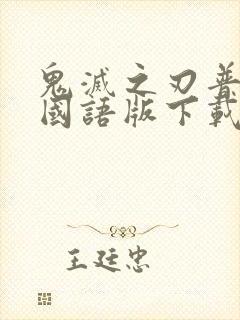 鬼滅之刃普
國語版下載
王廷忠